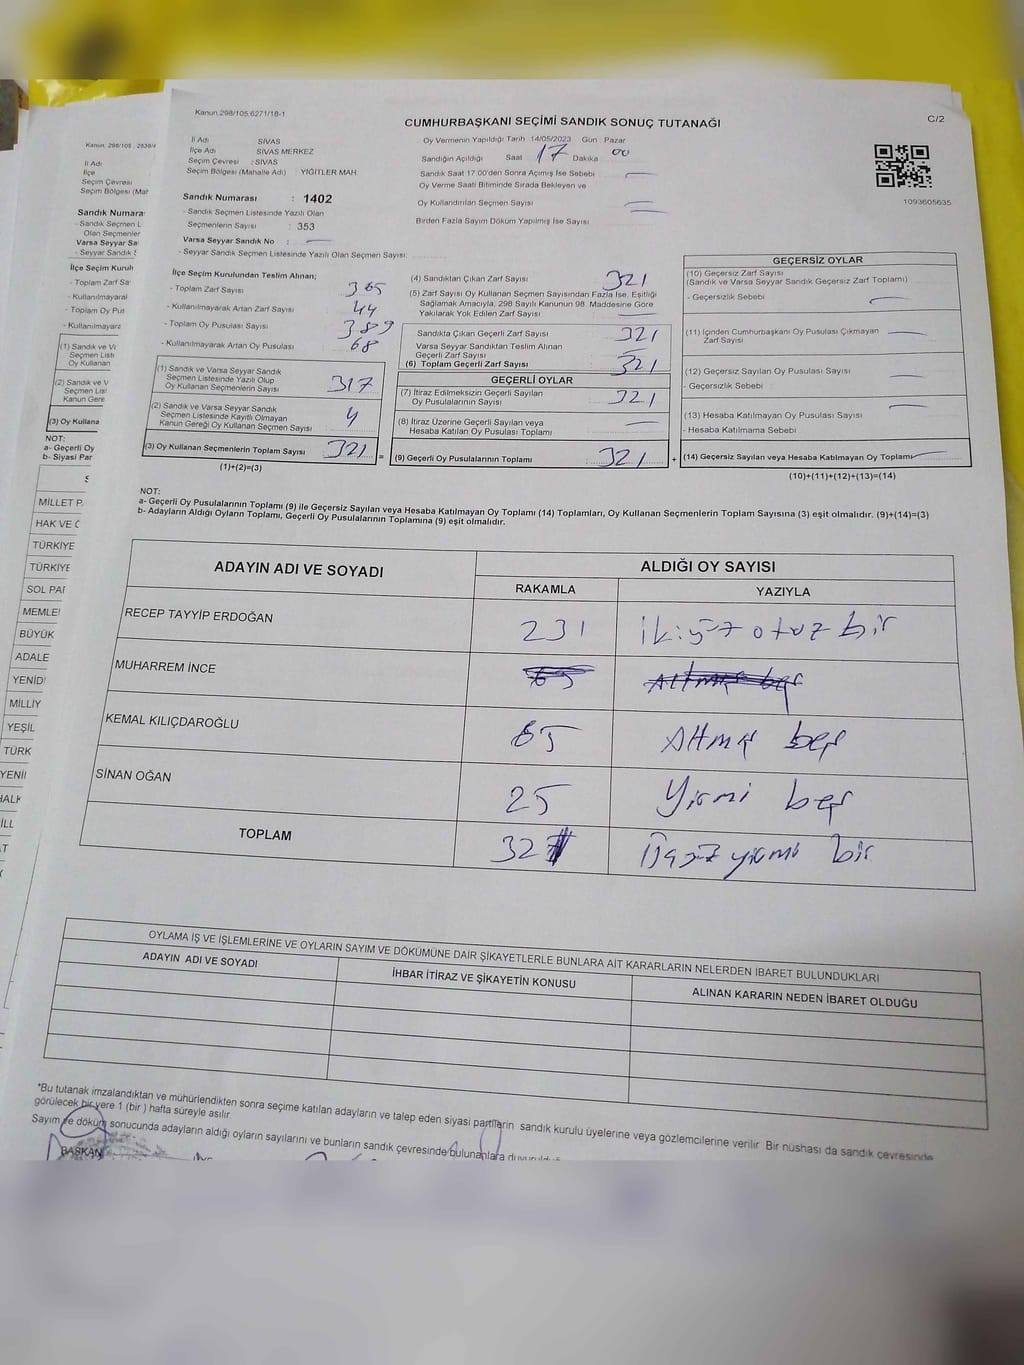 Kanun.298/105.6271/18-1
CUMHURBAŞKANI SEÇİMİ SANDIK SONUÇ TUTANAĞI
C/2
İl Adı : SİVAS
İlçe Adı : SİVAS MERKEZ
Seçim Çevresi : SİVAS
Seçim Bölgesi (Mahalle Adı) : YİĞİTLER MAH
Sandık Numarası : 1402
- Sandık Seçmen Listesinde Yazılı Olan
Seçmenlerin Sayısı : 353
Varsa Seyyar Sandık No :
- Seyyar Sandık Seçmen Listesinde Yazılı Olan Seçmen Sayısı:
Oy Vermenin Yapıldığı Tarih :14/05/2023 Gün : Pazar
Sandığın Açıldığı Saat : 17 Dakika : 00
Sandık Saat 17:00'den Sonra Açımış İse Sebebi
Oy Verme Saati Bitiminde Sırada Bekleyen ve
Oy Kullandırılan Seçmen Sayısı
Birden Fazla Sayım Döküm Yapılmış İse Sayısı
1093605635
İlçe Seçim Kurulundan Teslim Alınan;
- Toplam Zarf Sayısı : 365
- Kullanılmayarak Artan Zarf Sayısı : 44
- Toplam Oy Pusulası Sayısı : 389
- Kullanılmayarak Artan Oy Pusulası : 68
(1) Sandık ve Varsa Seyyar Sandık
Seçmen Listesinde Yazılı Olup
Oy Kullanan Seçmenlerin Sayısı 317
(2) Sandık ve Varsa Seyyar Sandık
Seçmen Listesinde Kayıtlı Olmayan
Kanun Gereği Oy Kullanan Seçmen Sayısı 4
(3) Oy Kullanan Seçmenlerin Toplam Sayısı 321
(1)+(2)=(3)
(4) Sandıktan Çıkan Zarf Sayısı 321
(5) Zarf Sayısı Oy Kullanan Seçmen Sayısından Fazla İse, Eşitliği
Sağlamak Amacıyla, 298 Sayılı Kanunun 98. Maddesine Göre
Yakılarak Yok Edilen Zarf Sayısı
Sandıkta Çıkan Geçerli Zarf Sayısı 321
Varsa Seyyar Sandıktan Teslim Alınan
Geçerli Zarf Sayısı
(6) Toplam Geçerli Zarf Sayısı 321
GEÇERLİ OYLAR
(7) İtiraz Edilmeksizin Geçerli Sayılan
Oy Pusulalarının Sayısı 321
(8) İtiraz Üzerine Geçerli Sayılan veya
Hesaba Katılan Oy Pusulası Toplamı
(9) Geçerli Oy Pusulalarının Toplamı 321
GEÇERSİZ OYLAR
(10) Geçersiz Zarf Sayısı
(Sandık ve Varsa Seyyar Sandık Geçersiz Zarf Toplamı)
- Geçersizlik Sebebi
(11) İçinden Cumhurbaşkanı Oy Pusulası Çıkmayan
Zarf Sayısı
(12) Geçersiz Sayılan Oy Pusulası Sayısı
- Geçersizlik Sebebi
(13) Hesaba Katılmayan Oy Pusulası Sayısı
- Hesaba Katılmama Sebebi
(14) Geçersiz Sayılan veya Hesaba Katılmayan Oy Toplamı
(10)+(11)+(12)+(13)=(14)
NOT:
a- Geçerli Oy Pusulalarının Toplamı (9) ile Geçersiz Sayılan veya Hesaba Katılmayan Oy Toplamı (14) Toplamları, Oy Kullanan Seçmenlerin Toplam Sayısına (3) eşit olmalıdır. (9)+(14)=(3)
b- Adayların Aldığı Oyların Toplamı, Geçerli Oy Pusulalarının Toplamına (9) eşit olmalıdır.
ADAYIN ADI VE SOYADI
ALDIĞI OY SAYISI
RAKAMLA YAZIYLA
RECEP TAYYİP ERDOĞAN 231 ikiyüz otuz bir
MUHARREM İNCE 65 Altmış beş
KEMAL KILIÇDAROĞLU 65 Altmış beş
SİNAN OĞAN 25 Yirmi beş
TOPLAM 321 Üçyüz yirmi bir
OYLAMA İŞ VE İŞLEMLERİNE VE OYLARIN SAYIM VE DÖKÜMÜNE DAİR ŞİKAYETLERLE BUNLARA AİT KARARLARIN NELERDEN İBARET BULUNDUKLARI
ADAYIN ADI VE SOYADI İHBAR İTİRAZ VE ŞİKAYETİN KONUSU ALINAN KARARIN NEDEN İBARET OLDUĞU
*Bu tutanak imzalandıktan ve mühürlendikten sonra seçime katılan adayların ve talep eden siyasi partilerin sandık kurulu üyelerine veya gözlemcilerine verilir. Bir nüshası da sandık çevresinde
görülecek bir yere 1 (bir) hafta süreyle asılır.
Sayım ve döküm sonucunda adayların aldığı oyların sayılarını ve bunların sandık çevresinde bulunanlara
BAŞKAN
Kanun. 298/105
İl Adı
İlçe
Seçim Çevresi
Seçim Bölgesi (Mah
Sandık Numara
- Sandık Seçmen L
Olan Seçmenler
Varsa Seyyar Sa
- Seyyar Sandık
İlçe Seçim Kurul
- Toplam Zarf Sa
- Kullanılmayaral
- Toplam Oy Pus
- Kullanılmayara
(1) Sandık ve V
Seçmen List
Oy Kullanan
(2) Sandık ve V
Seçmen Lis
Kanun Gere
(3) Oy Kullana
NOT:
a- Geçerli Oy
b- Siyasi Par
MİLLET P
HAK VE Ö
TÜRKİYE
TÜRKİYE
SOL PAR
MEMLE
BÜYÜK
ADALE
YENİD
MİLLİY
YEŞİL
TÜRK
YENİ
HALK